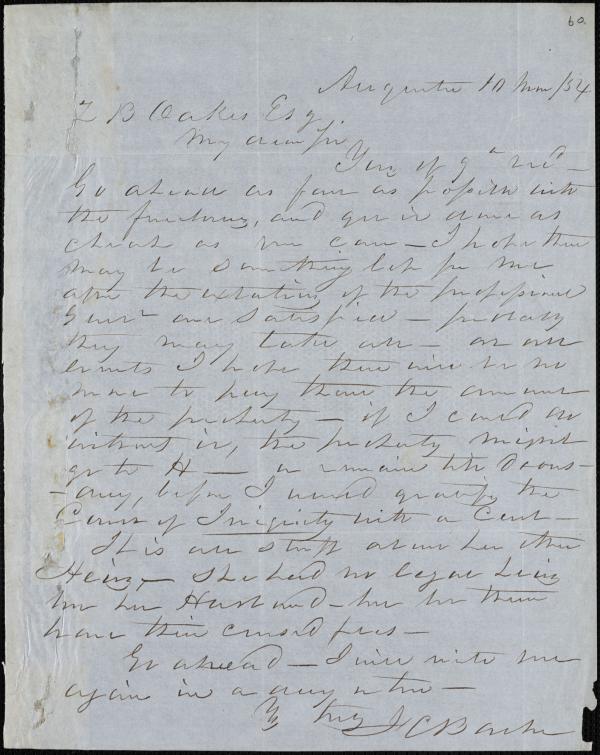 60.
Augusta 10 Nov /54
Z B Oakes Esq
My dear Sir
Yrs of 9th recd —
Go ahead as far as possible with
the purchase, and get it done as
cheap as you can — I hope there
may be something left for me
after the of the professional
Gent are satisfied — probably
they may take all — at all
events I hope there will be no
more to pay than the amount
of the property — if I could do
without it, the property might
go to H — or remain till Dooms-
-day, before I would gratify the
Court of Iniquity with a Cent —
It is all stuff about her other
Heirs — She had no legal heirs
but her Husband — but let them
have their cursed fees —
Go ahead — I will write you
again in a day or two —
Yrs truly